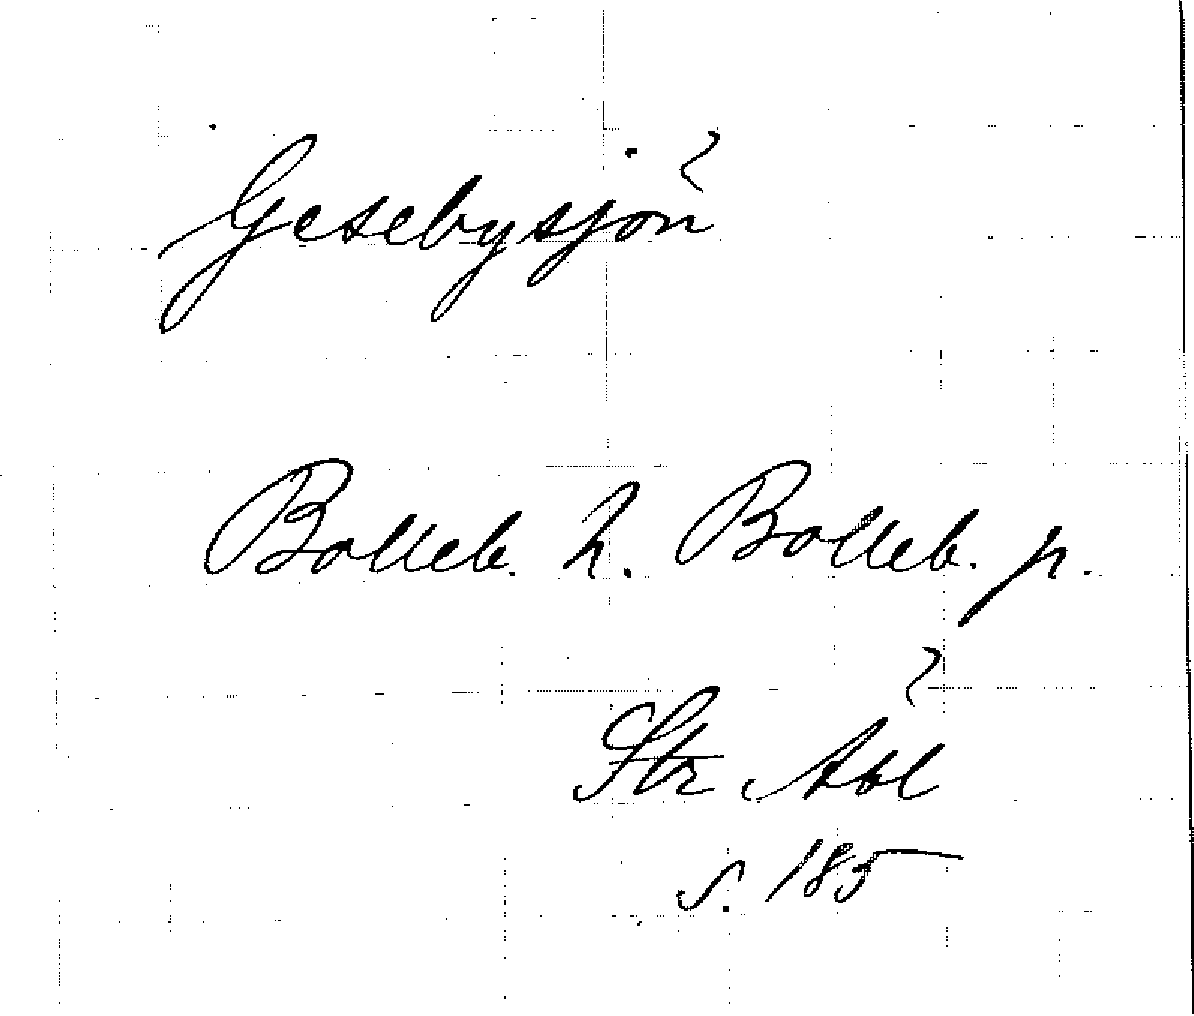 Gesebysjön
Bolleb. h. Bolleb. p.
Str
s. 185